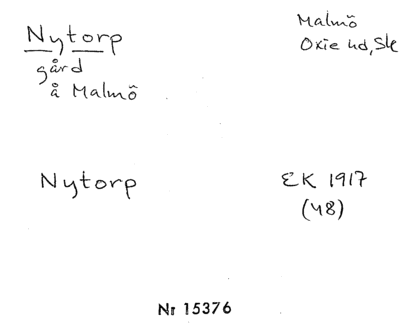 Nytorp
Malmö
Oxie hd, Sk
gård
å Malmö
Nytorp
EK 1917
(48)
Nr 15376